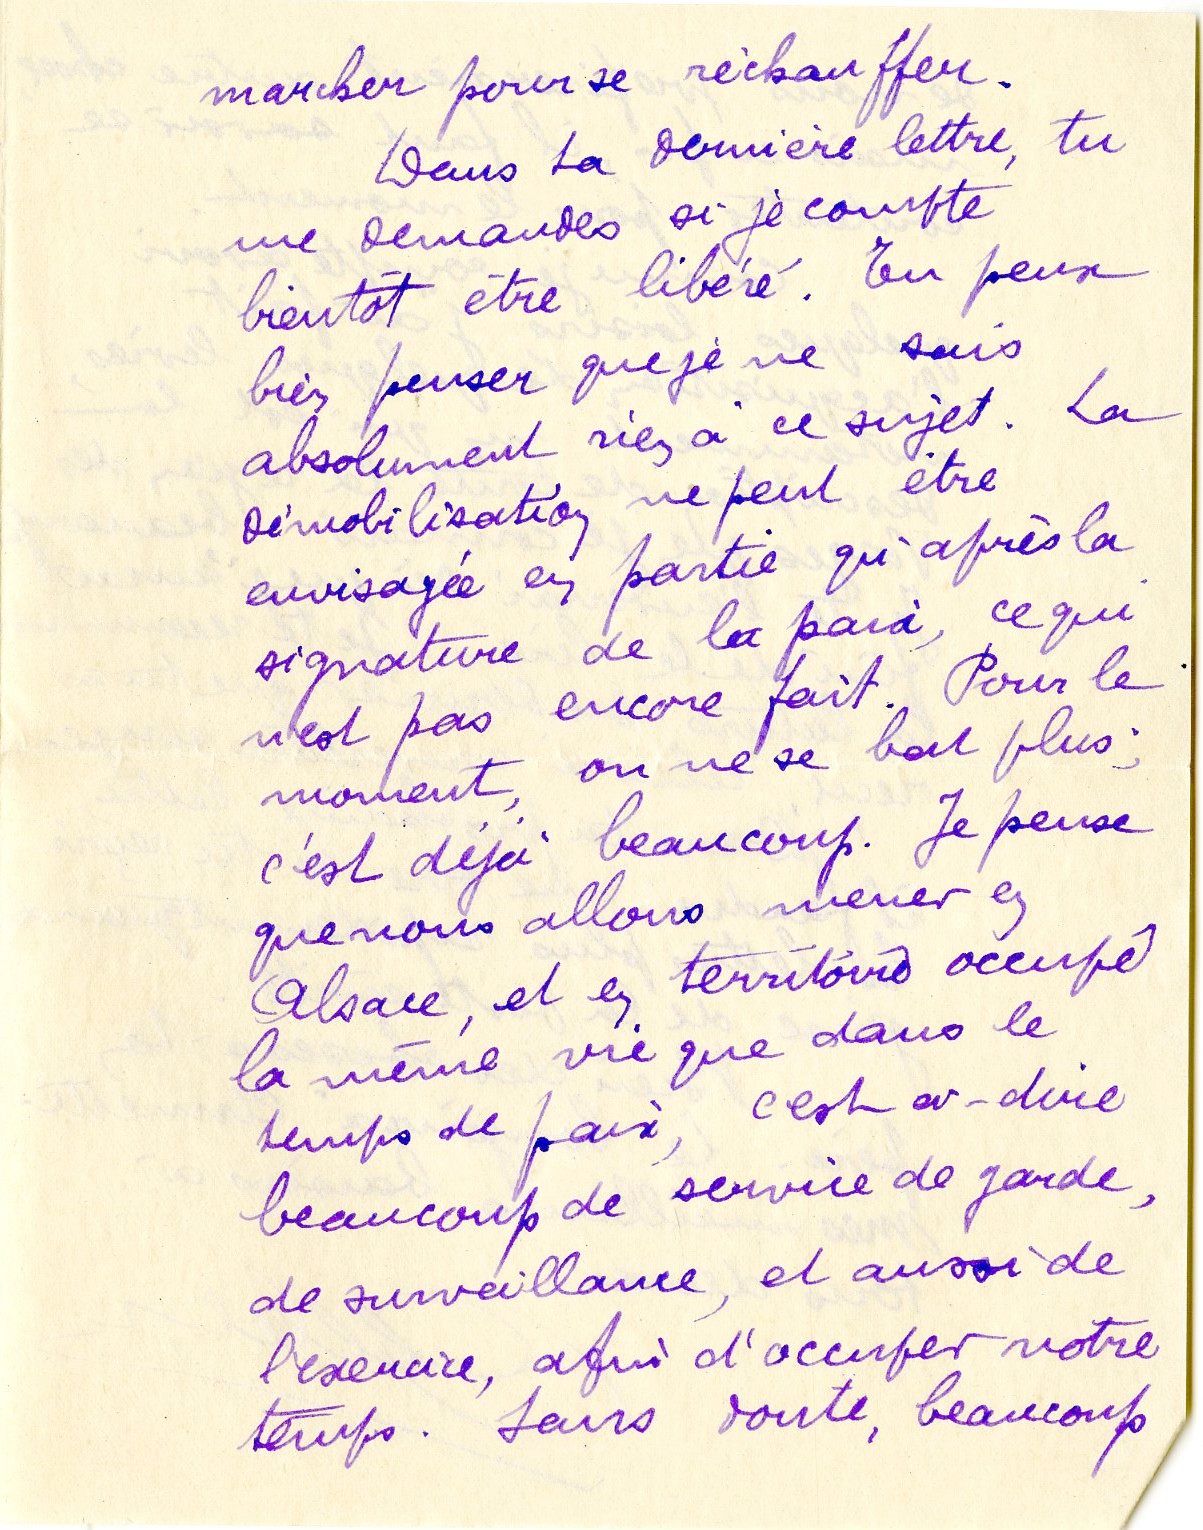 marcher pour se réchauffer.
Dans ta dernière lettre, tu
me demandes si je compte
bientôt être libéré. Tu peux
bien penser que je ne sais
absolument rien à ce sujet. La
démobilisation ne peut être
envisagée en partie qu'après la
signature de la paix, ce qui
n'est pas encore fait. Pour le
moment, on ne se bat plus ;
c'est déjà beaucoup. Je pense
que nous allons mener en
Alsace, et en territoire occupé
la même vie que dans le
temps de paix, c'est-à-dire
beaucoup de service de garde,
de surveillance, et aussi de
l'exercice, afin d'occuper notre
temps. Sans doute, beaucoup